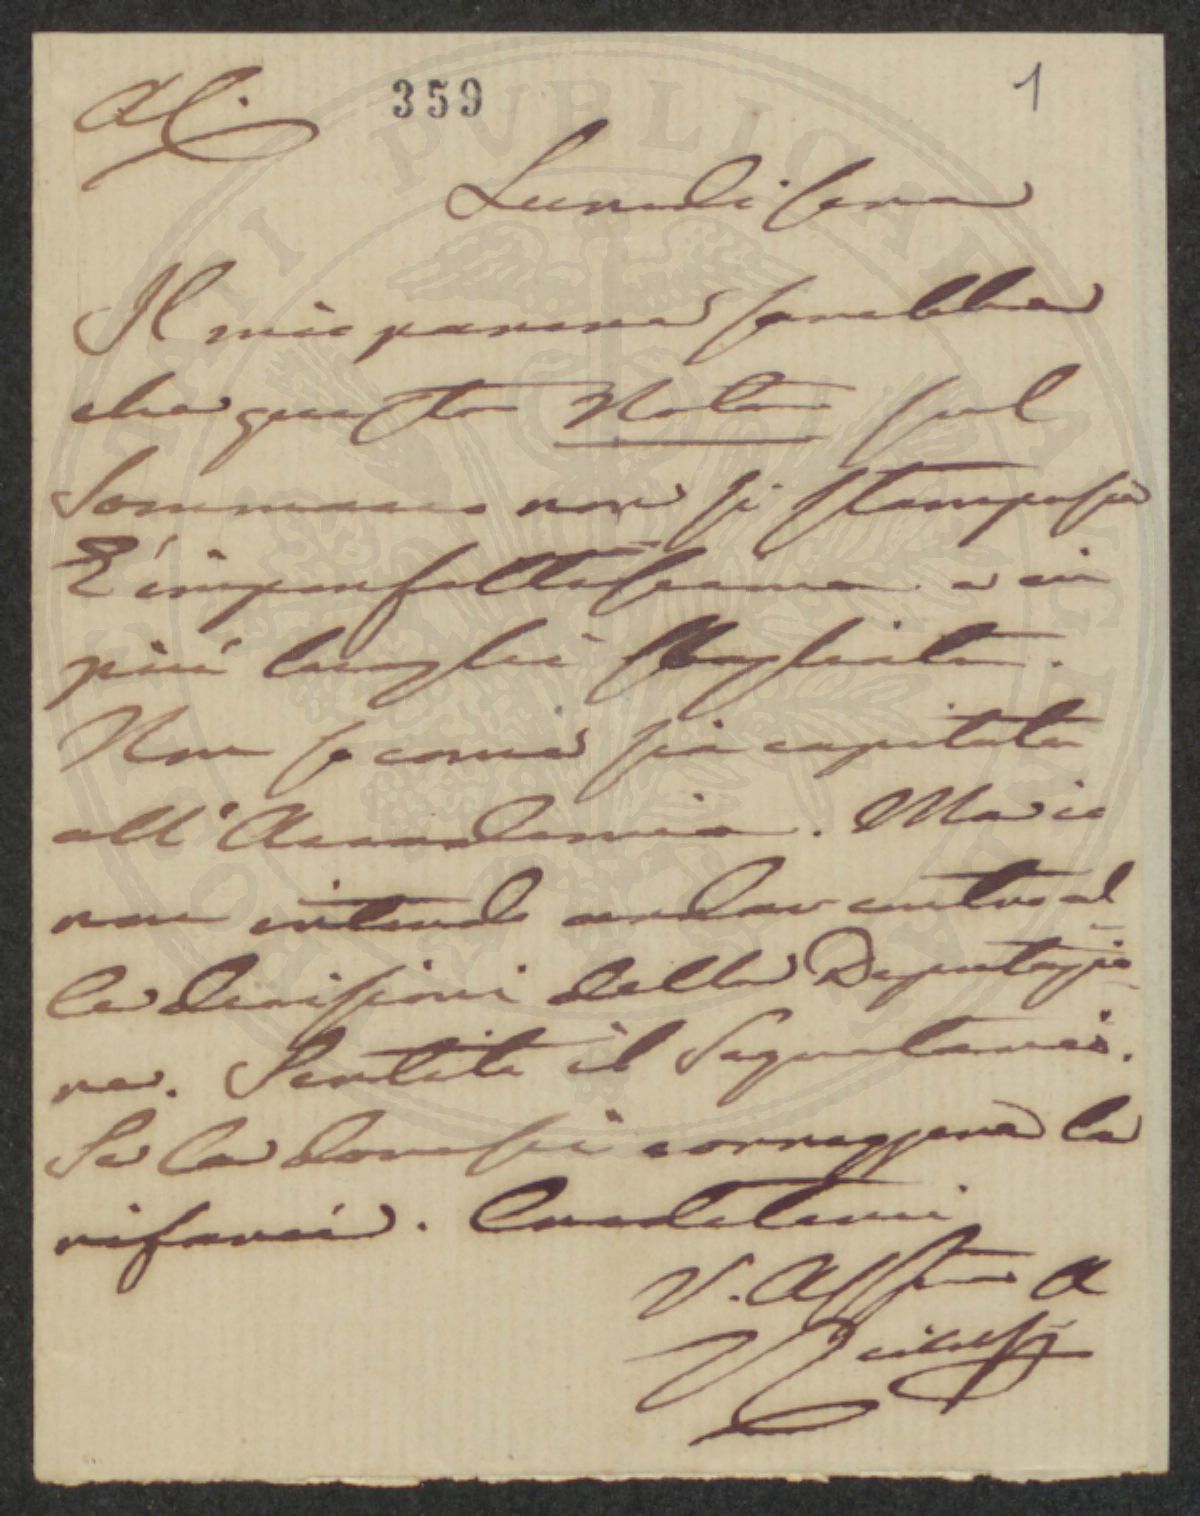 A C. 359 1
Lunedi sera
Il mio parere sarebbe
che questa Nota sul
Sommacco non si stampasse
È imperfettissima e in
più luoghi sbagliata.
Non so come sia capitata
all'Accademia. Ma io
non intendo andar contro al
le decisioni della Deputazio
ne. Sentite il Segretario.
Se la dovessi correggere la
rifarei. Credetemi
V. Aff A